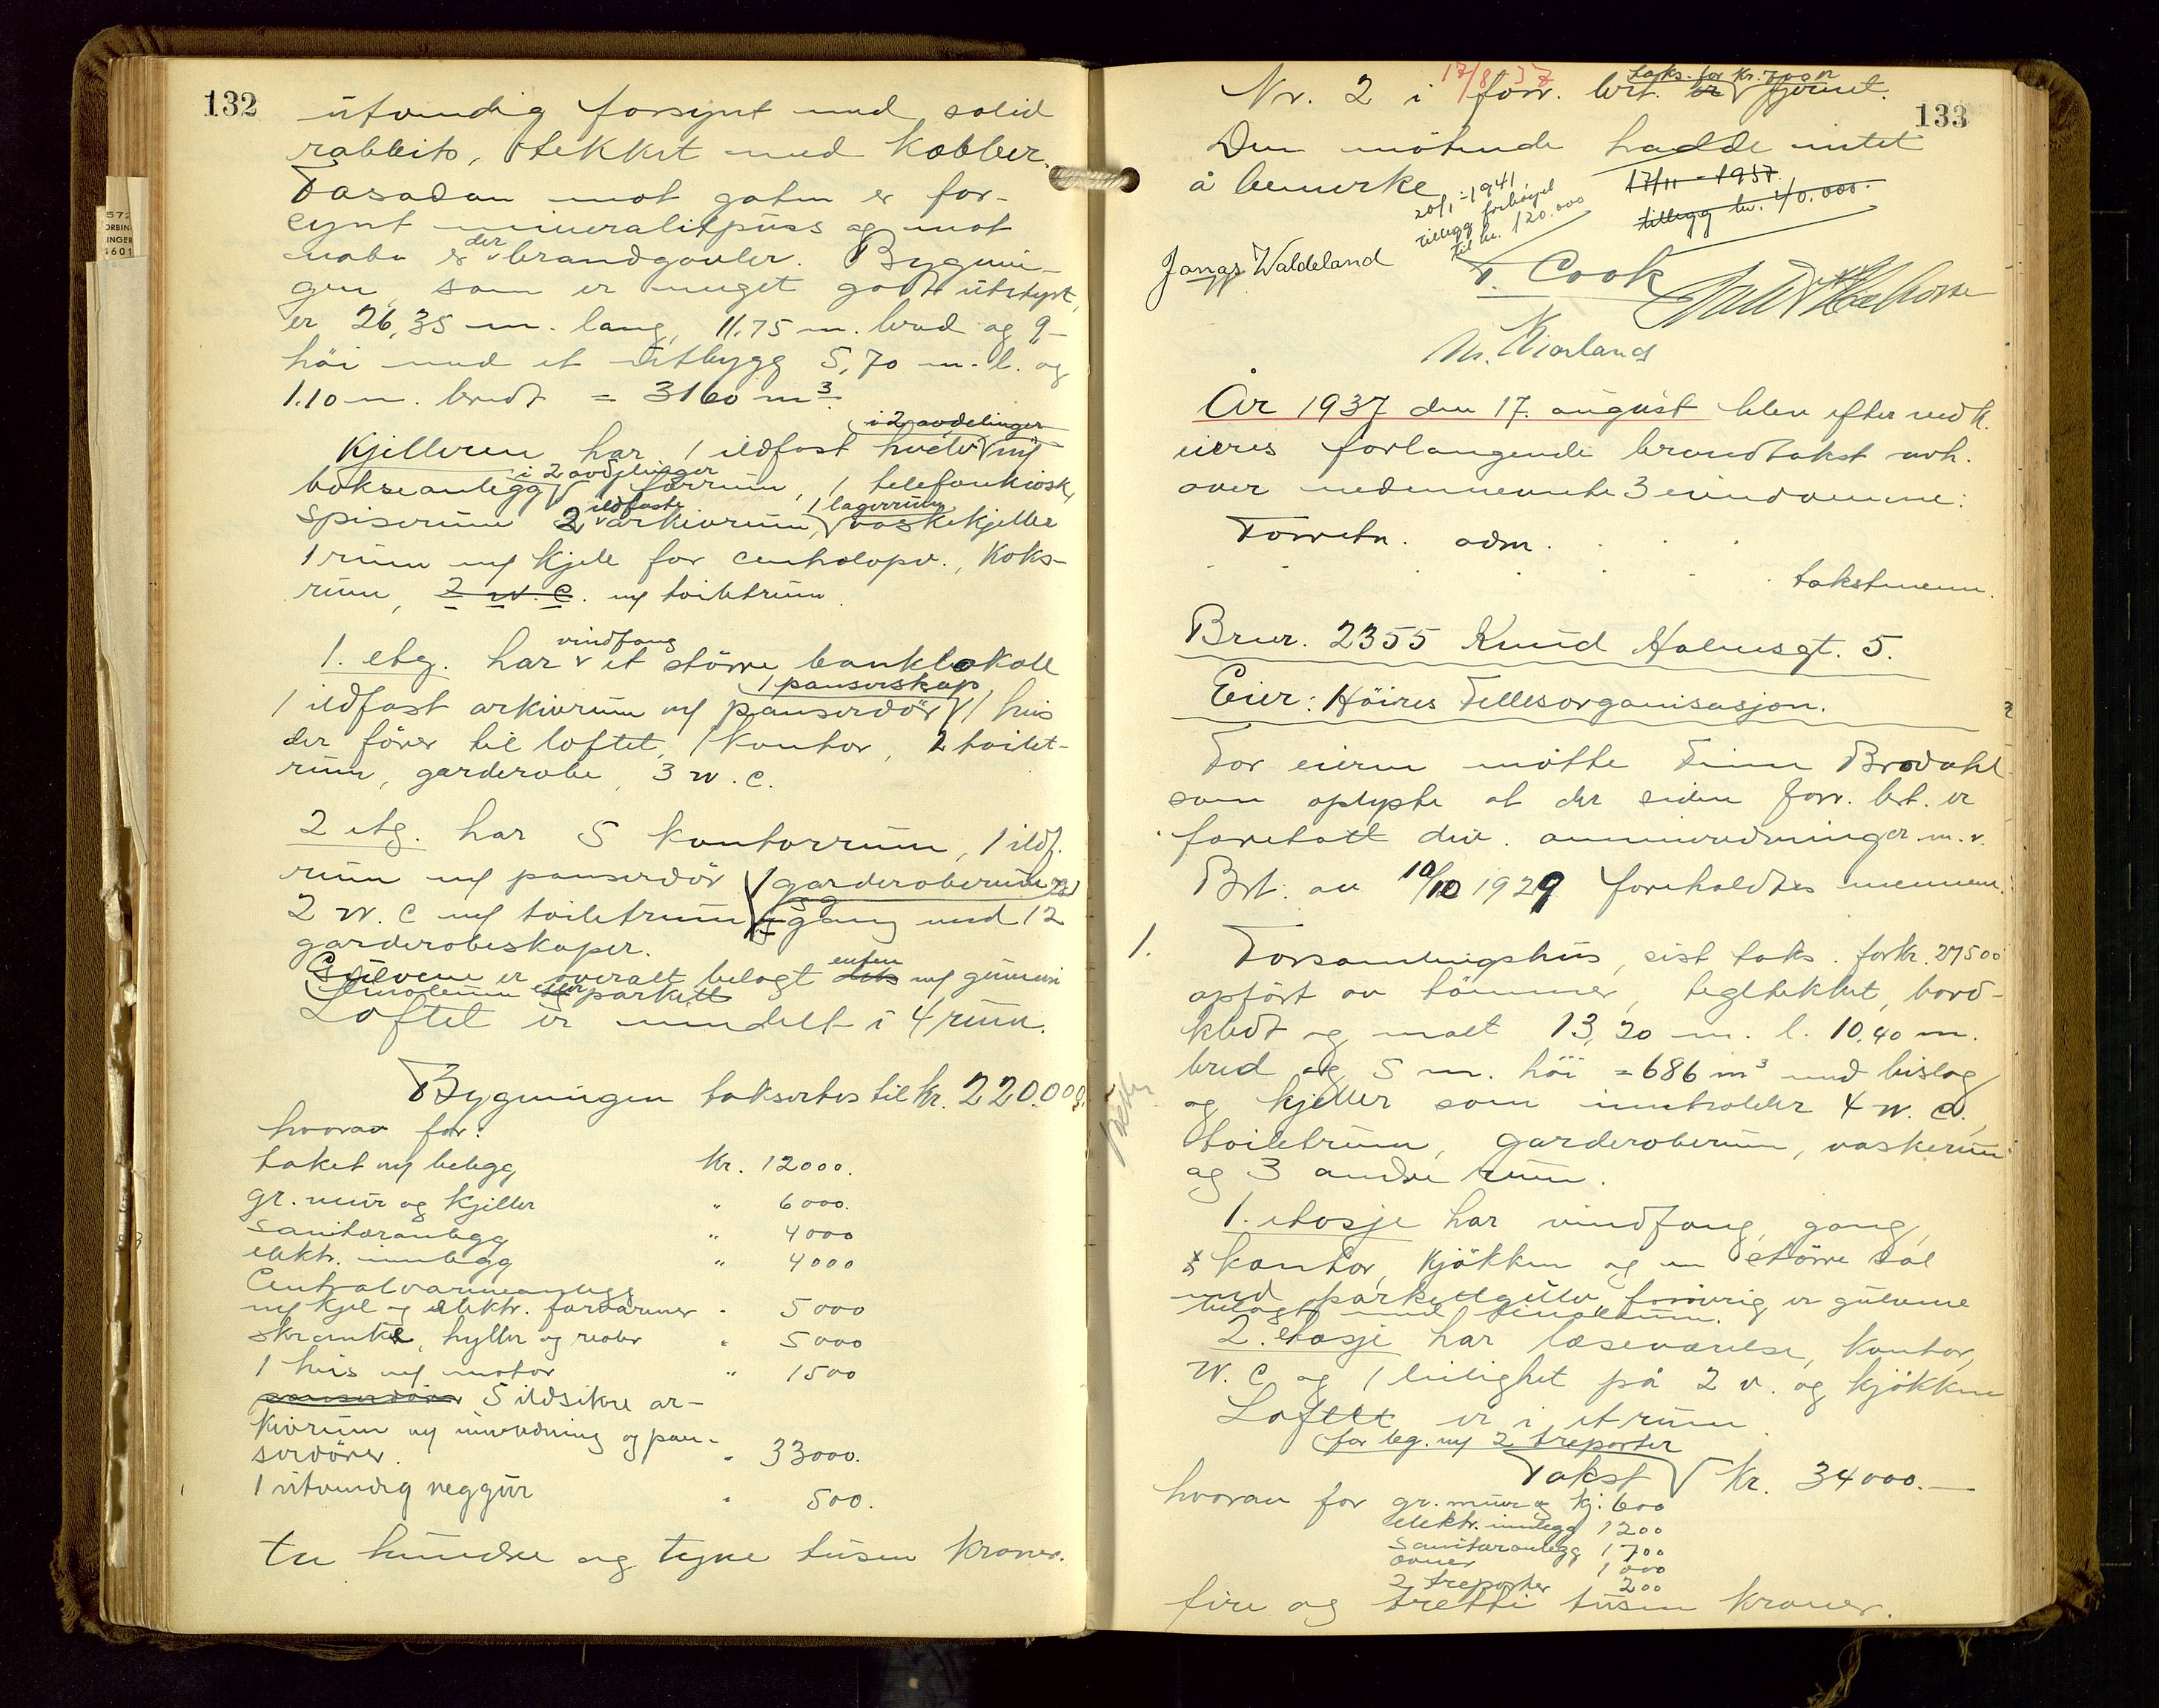 132
utvendig forsynt med solid
rabbits, tekket med kobber.
Fasaden mot gaten er for-
synt mineralitpuss og mot
nabo er der brandgavler. Bygnin-
gen, som er meget godt utstyrt,
er 26,35 m. lang, 11.75 m. bred og 9-
höi med et utbygg 5,70 m. l. og
1.10 m. bredt = 3160 m³.
i 2 avdelinger
Kjelleren har 1 ildfast hvelv m/
i 2 avdelinger
bokseanlegg 1 forrum, 1 telefonkiosk,
ildfaste 1 lagerrum
spiserum 2 arkivrum, vaskekjeller
1 rum m/ kjele for centralopv., koks-
rum, 2 W.C. m/ toiletrum.
vindfang
1. etg. har et större banklokale
1 panserskap
1 ildfast arkivrum m/ panserdör 1 heis
der förer til loftet, 1 kontor, 2 toilet-
rum, garderobe, 3 W.C.
2 etg. har 5 kontorrum, 1 ildf.
rum m/ panserdör 1 garderoberum og
2 W.C m/ toiletrum gang med 12
garderobeskaper.
Gulvene er overalt belagt enten m/ gummi
linoleum eller parkett
Loftet er inndelt i 4 rum.
Bygningen taksertes til kr. 220.000,
hvorav for:
taket m/ belegg kr. 12000.
gr. mur og kjeller " 6000.
sanitæranlegg " 4000
elektr. innlegg " 4000
Centralvarmeanlegg
m/ kjel og elektr. forvarmer " 5000
skranke, hyller og reoler " 5000
1 heis m/ motor " 1500
panserdörer 5 ildsikre ar-
kivrum m/ innredning og pan-
serdörer. " 33000.
1 utvendig veggur " 500.
to hundre og tyve tusen kroner.
133
17/8-37
taks. for kr. 7000
Nr. 2 i forr. brt. er fjernet.
Den mötende hadde intet
å bemerke
20/1-1941
tillegg forhöiet
til kr. 120.000
17/11-1937
tillegg kr. 40.000.
Jonas Waldeland
T. Cook
M. Kiorland
År 1937 den 17. august blev efter vedk.
eieres forlangende brandtakst avh.
over nedennevnte 3 eiendomme:
Forretn. adm. . . .
. . . . . takstmenn.
Brnr. 2355 Knud Holmsgt. 5.
Eier: Höires Fellesorganisasjon.
For eieren mötte Finn Brodahl
som oplyste at der siden forr. brt. er
foretatt div. ominnredninger m.v.
Brt. av 10/10 1929 foreholdtes mennene.
1. Forsamlingshus, sist taks. for kr. 27500
opfört av tömmer, tegltekket, bord-
kledt og malt 13,20 m. l. 10,40 m.
bred og 5 m. höi = 686 m³ med bislag
og kjeller som inneholder 4 W.C.,
toiletrum, garderoberum, vaskerum
og 3 andre rum.
1. etasje har vindfang, gang,
kontor, kjökken og en större sal
med parkettgulv, forövrig er gulvene
belagt med linoleum.
2. etasje har læseværelse, kontor,
W.C og 1 leilighet på 2 v. og kjökken
Loftet er i et rum.
for beg. m/ 2 treporter
Takst kr. 34000.-
hvorav for gr. mur og kj: 600
elektr. innlegg 1200
sanitæranlegg 1700
ovner 1000
2 treporter 200
fire og tretti tusen kroner.